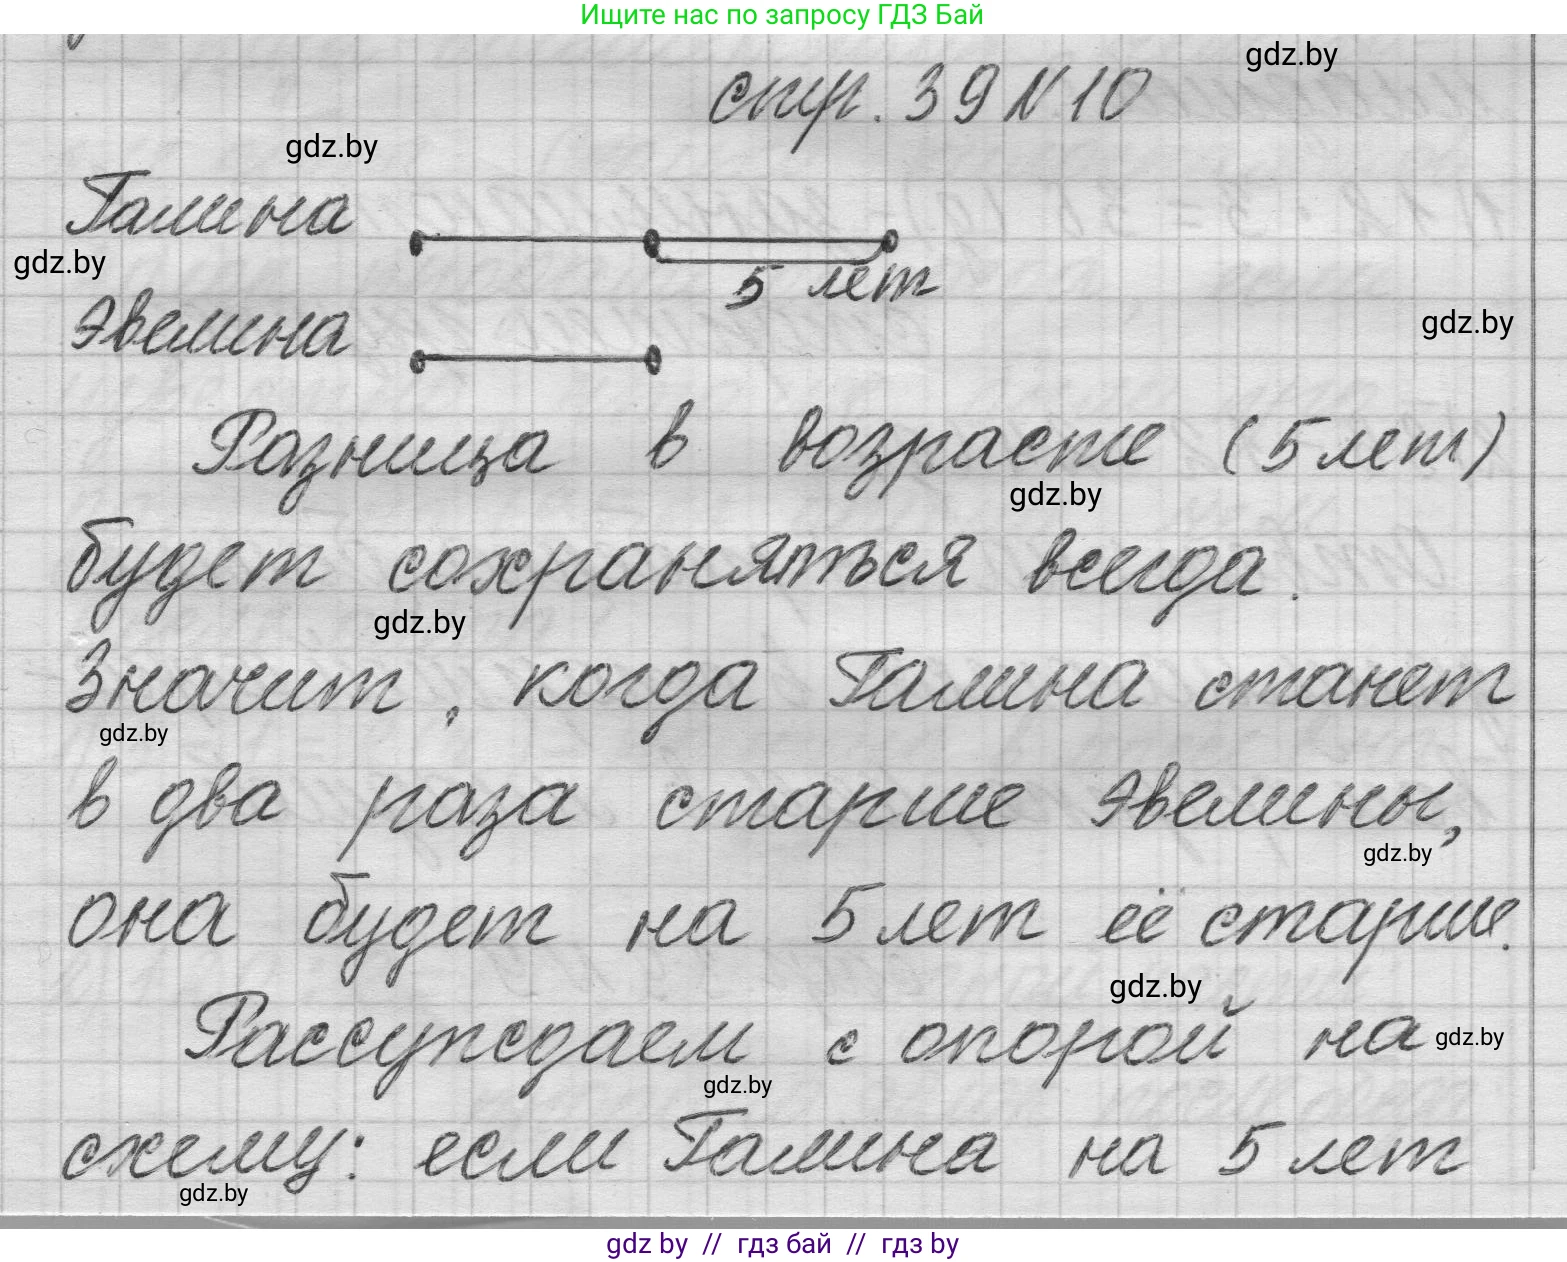 Ищите нас по запросу ГДЗ Бай
gdz.by
стр. 39 N 10
gdz.by
Галина
gdz.by
5 лет
Эвелина
gdz.by
Разница в возрасте (5 лет)
gdz.by
будет сохраняться всегда.
gdz.by
Значит, когда Галина станет
gdz.by
в два раза старше Эвелины,
gdz.by
она будет на 5 лет её старше.
gdz.by
Рассуждаем с опорой на
gdz.by
gdz.by
схему: если Галина на 5 лет
gdz.by
gdz by // гдз бай // гдз by